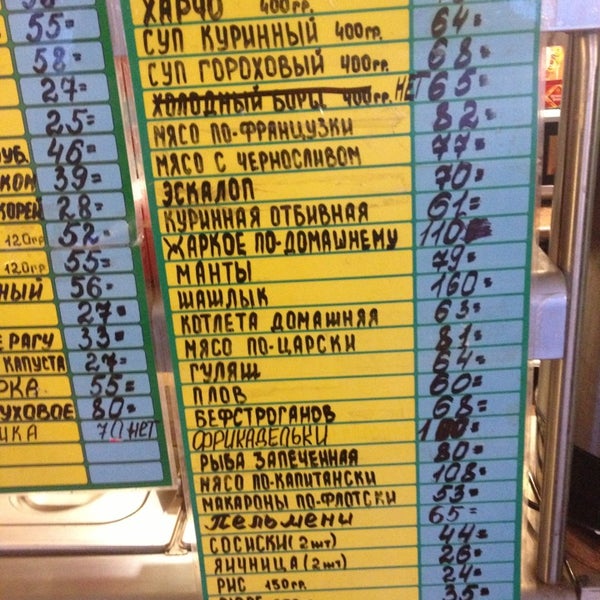 55=
58=
27=
25=
УБ. 46=
КОМ 39=
КОРЕЙ 28=
120гр 52=
120гр 55=
НЫЙ 56=
27=
Е РАГУ 33=
КАПУСТА 27=
РКА 55=
УХОВОЕ 80=
70 НЕТ
ХАРЧО 400гр.
СУП КУРИННЫЙ 400гр. 64=
СУП ГОРОХОВЫЙ 400гр. 68=
ХОЛОДНЫЙ БОРЩ 400гр. НЕТ 65=
МЯСО ПО-ФРАНЦУЗКИ 82=
МЯСО С ЧЕРНОСЛИВОМ 77=
ЭСКАЛОП 70=
КУРИННАЯ ОТБИВНАЯ 61=
ЖАРКОЕ ПО-ДОМАШНЕМУ 110
МАНТЫ 79=
ШАШЛЫК 160=
КОТЛЕТА ДОМАШНЯЯ 63=
МЯСО ПО-ЦАРСКИ 81=
ГУЛЯШ 64=
ПЛОВ 60=
БЕФСТРОГАНОВ 68=
ФРИКАДЕЛЬКИ
РЫБА ЗАПЕЧЕННАЯ 80=
МЯСО ПО-КАПИТАНСКИ 108=
МАКАРОНЫ ПО-ФЛОТСКИ 53=
ПЕЛЬМЕНИ 65=
СОСИСКИ (2шт) 44=
ЯИЧНИЦА (2шт) 26=
РИС 150гр. 24=
35=